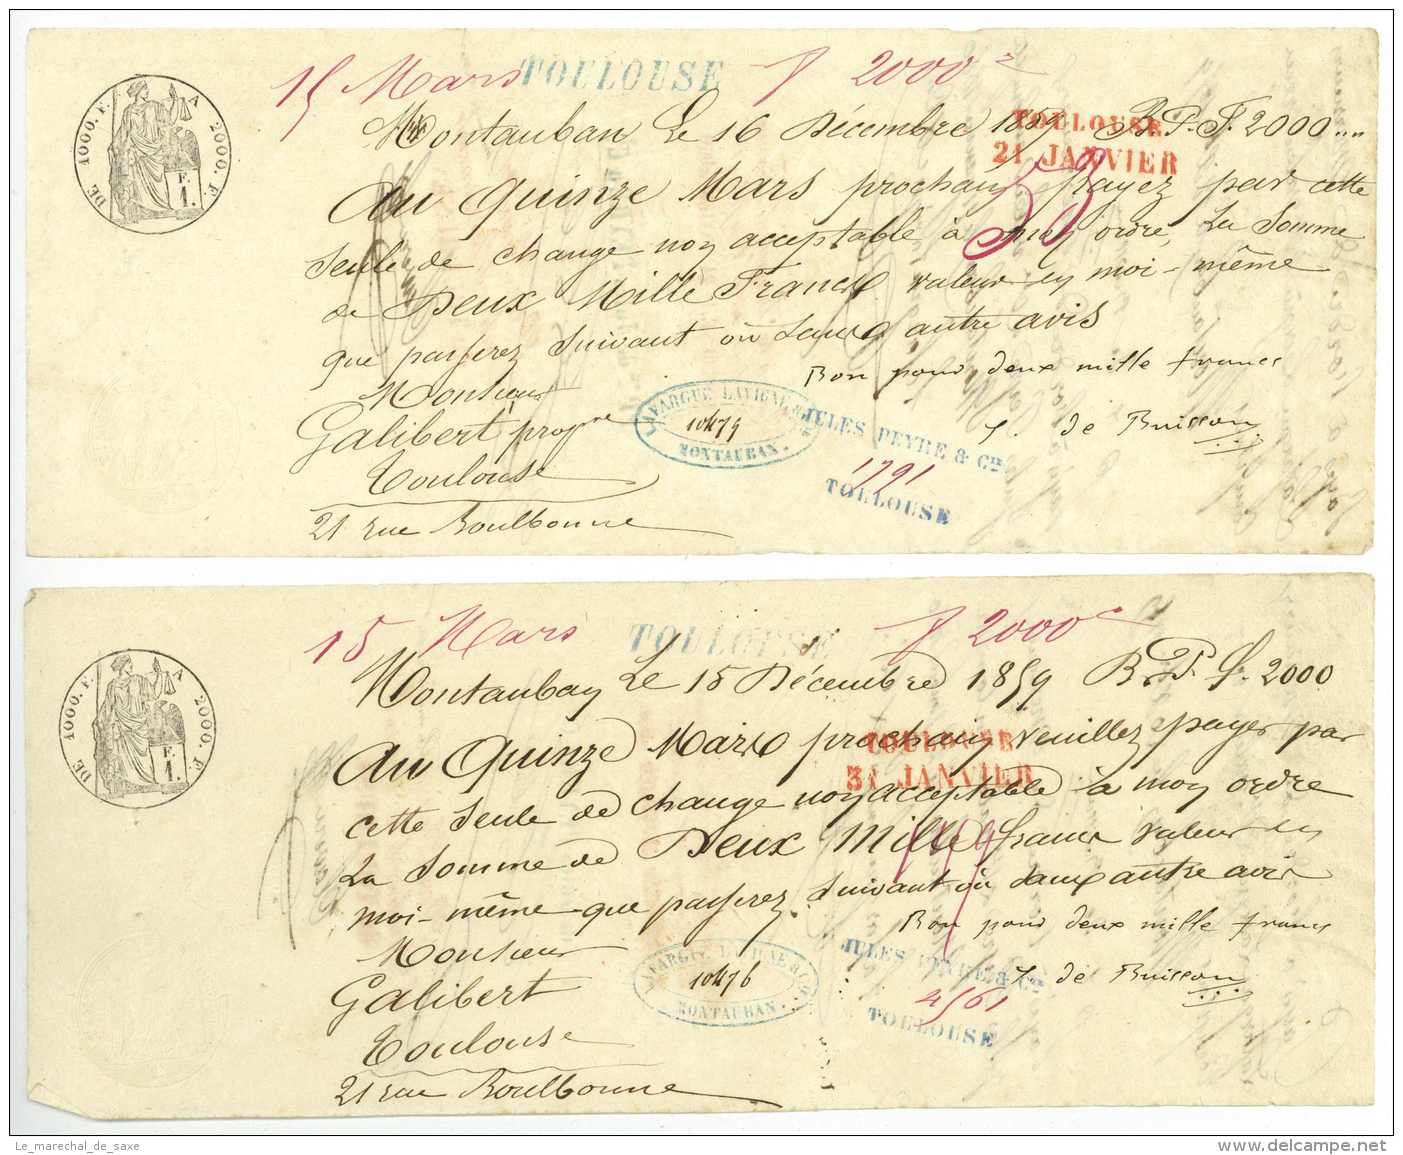 15 Mars TOULOUSE f 2000
DE 1000. F. A 2000. F.
F.
1.
Montauban Le 16 Décembre 1859 B.P.F. 2000
TOULOUSE
21 JANVIER
Au Quinze Mars prochain payez par cette
seule de change non acceptable à mon ordre, La Somme
de Deux Mille Francs valeur en moi-même
que passerez suivant ou sans autre avis
Bon pour deux mille francs
Monsieur
LAVARGUE LAVIGNE & Cie
10479
MONTAUBAN.
JULES PEYRE & Cie
J. de Buisson
Galibert propre
1791
TOULOUSE
Toulouse
21 rue Boulbonne
15 Mars TOULOUSE f 2000
DE 1000. F. A 2000. F.
F.
1.
Montauban Le 15 Décembre 1859 B.P.f. 2000
TOULOUSE
31 JANVIER
Au Quinze Mars prochain veuillez payer par
cette seule de change non acceptable à mon ordre
La Somme de Deux Mille francs valeur en
moi-même que passerez suivant ou sans autre avis
Bon pour deux mille francs
Monsieur
LAVARGUE LAVIGNE & Cie
10476
MONTAUBAN.
JULES PEYRE & Cie
J. de Buisson
Galibert
4561
TOULOUSE
Toulouse
21 rue Boulbonne
Le_marechal_de_saxe
www.delcampe.net